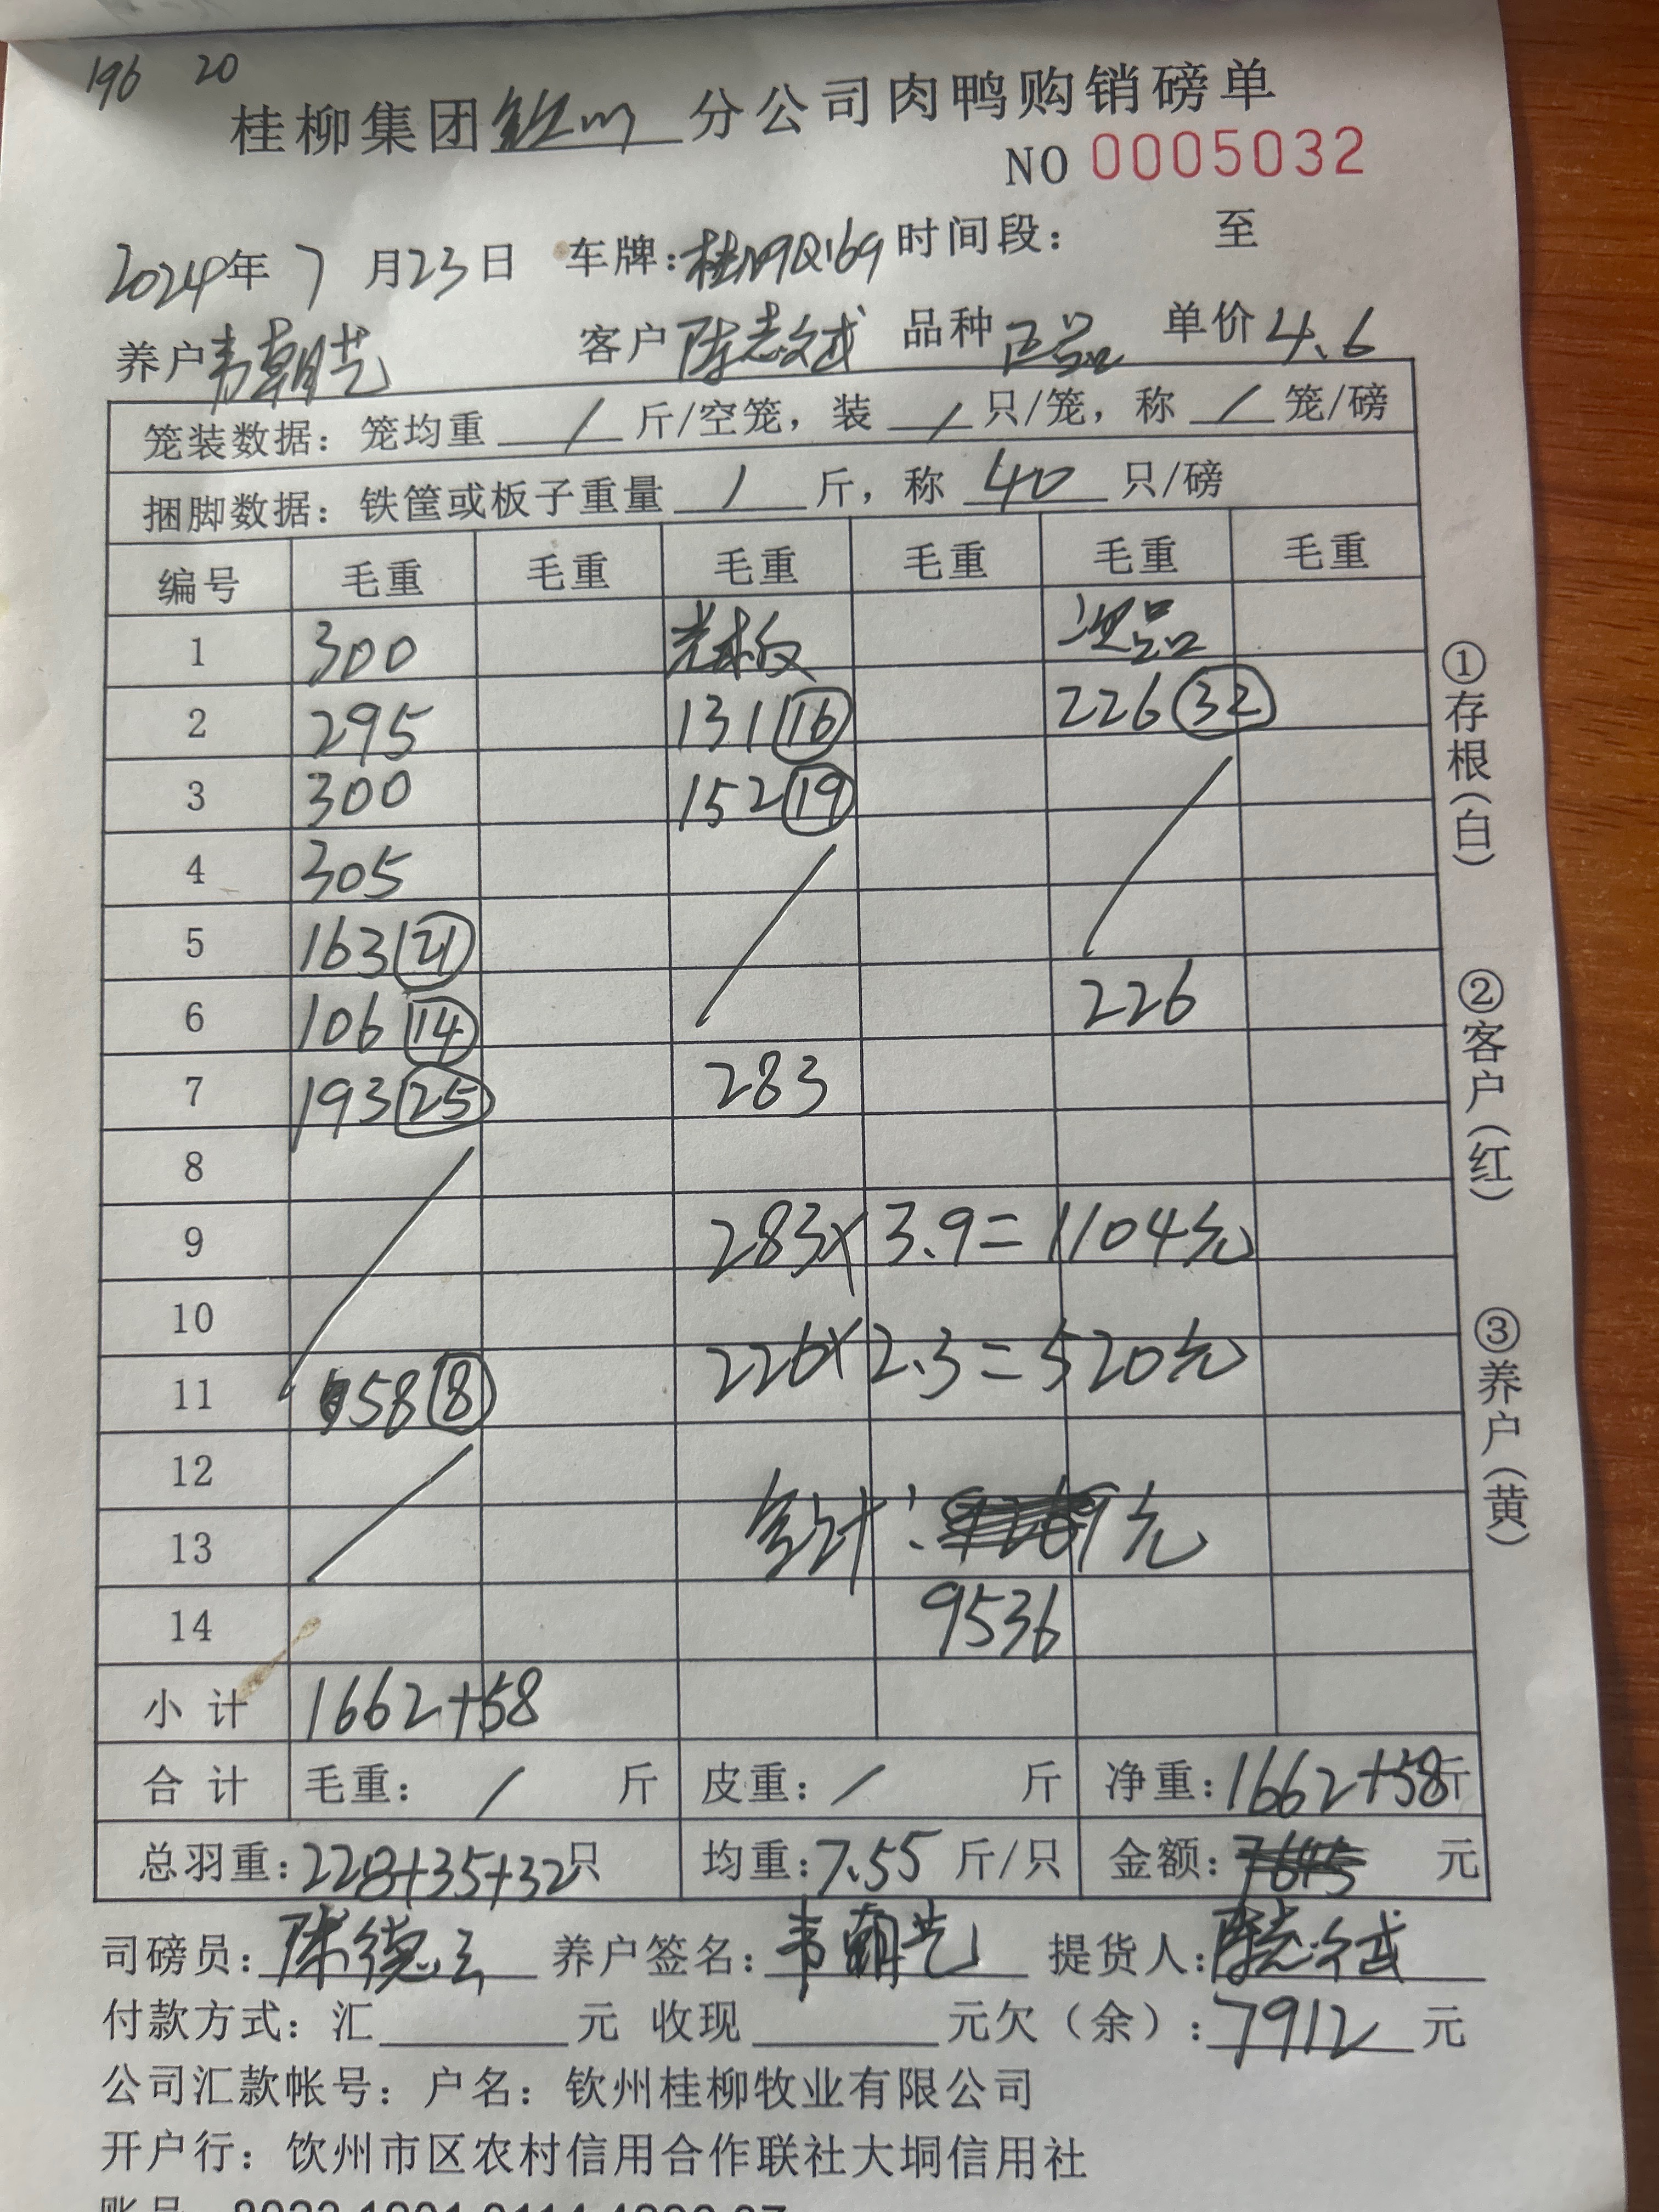 196 20
桂柳集团钦州分公司肉鸭购销磅单
NO 0005032
2024年 7月23日 车牌: 时间段: 至
养户韦朝艺 客户陈志斌 品种正品 单价4.6
笼装数据: 笼均重 / 斤/空笼, 装 / 只/笼, 称 / 笼/磅
捆脚数据: 铁筐或板子重量 / 斤, 称 40 只/磅
编号 毛重 毛重 毛重 毛重 毛重 毛重
1 300 光板 次品
2 295 131 16 226 32
3 300 152 19
4 305
5 163 21
6 106 14 226
7 193 25 283
8
9 283×3.9=1104元
10 226×2.3=520元
11 58 8
12
13 合计: 元
14 9536
小计 1662+58
合计 毛重: / 斤 皮重: / 斤 净重:1662+58斤
总羽重:228+35+32只 均重:7.55斤/只 金额:7645 元
司磅员:陈德云 养户签名:韦朝艺 提货人:陈志斌
付款方式: 汇 元 收现 元欠(余):7912 元
公司汇款帐号: 户名: 钦州桂柳牧业有限公司
开户行: 钦州市区农村信用合作联社大垌信用社
①存根(白)
②客户(红)
③养户(黄)